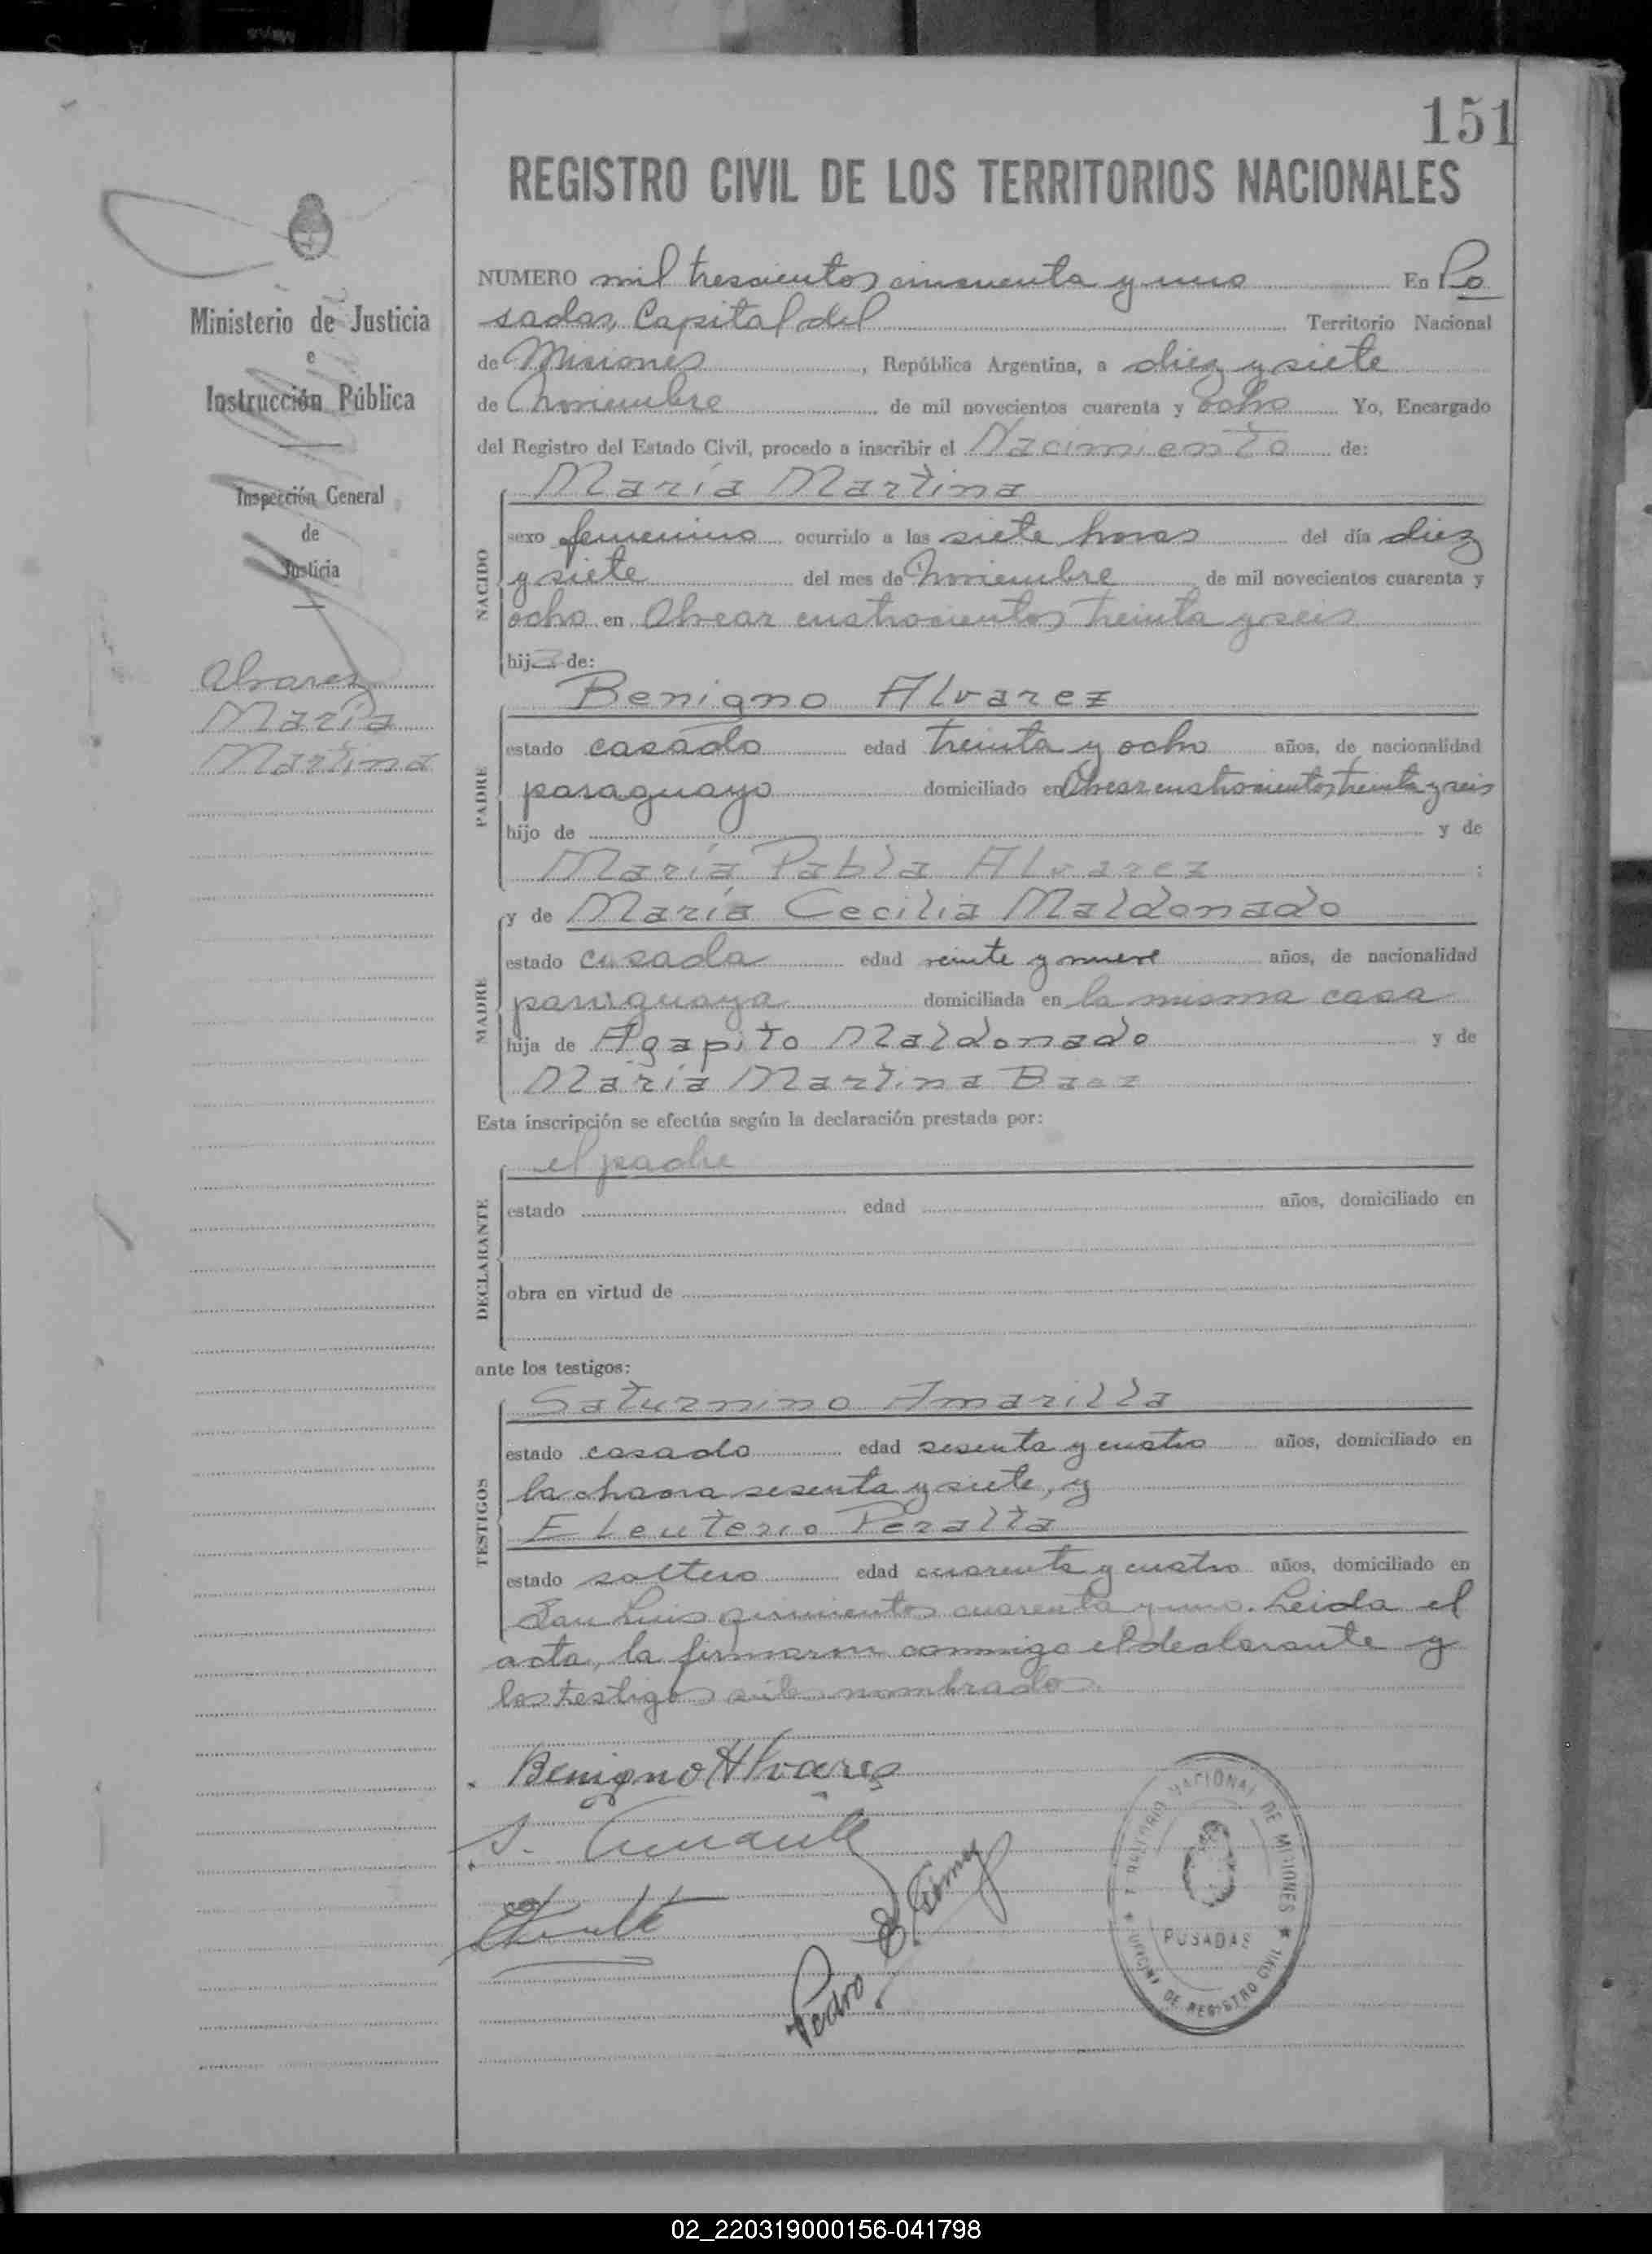 151
REGISTRO CIVIL DE LOS TERRITORIOS NACIONALES
Ministerio de Justicia
e
Instrucción Pública
Inspección General
de
Justicia
Alvarez
María
Martina
NUMERO mil trescientos cincuenta y uno En Po
sadas, Capital del Territorio Nacional
de Misiones, República Argentina, a diez y siete
de Noviembre de mil novecientos cuarenta y ocho Yo, Encargado
del Registro del Estado Civil, procedo a inscribir el Nacimiento de:
María Martina
NACIDO
sexo femenino ocurrido a las siete horas del día diez
y siete del mes de Noviembre de mil novecientos cuarenta y
ocho en Alvear cuatrocientos treinta y seis
hija de:
Benigno Alvarez
PADRE
estado casado edad treinta y ocho años, de nacionalidad
paraguayo domiciliado en Alvear cuatrocientos treinta y seis
hijo de y de
María Pabla Alvarez :
y de María Cecilia Maldonado
MADRE
estado casada edad veinte y nueve años, de nacionalidad
paraguaya domiciliada en la misma casa
hija de Agapito Maldonado y de
María Martina Baez
Esta inscripción se efectúa según la declaración prestada por:
el padre
DECLARANTE
estado edad años, domiciliado en
obra en virtud de
ante los testigos:
Saturnino Amarilla
TESTIGOS
estado casado edad sesenta y cuatro años, domiciliado en
la chacra sesenta y siete, y
Eleuterio Peralta
estado soltero edad cuarenta y cuatro años, domiciliado en
San Luis quinientos cuarenta y uno. Leida el
acta, la firmaron conmigo el declarante y
los testigos nombrados.
Benigno Alvares
S.
Pedro
TERRITORIO NACIONAL DE MISIONES
POSADAS
OFICINA DE REGISTRO CIVIL
02_220319000156-041798